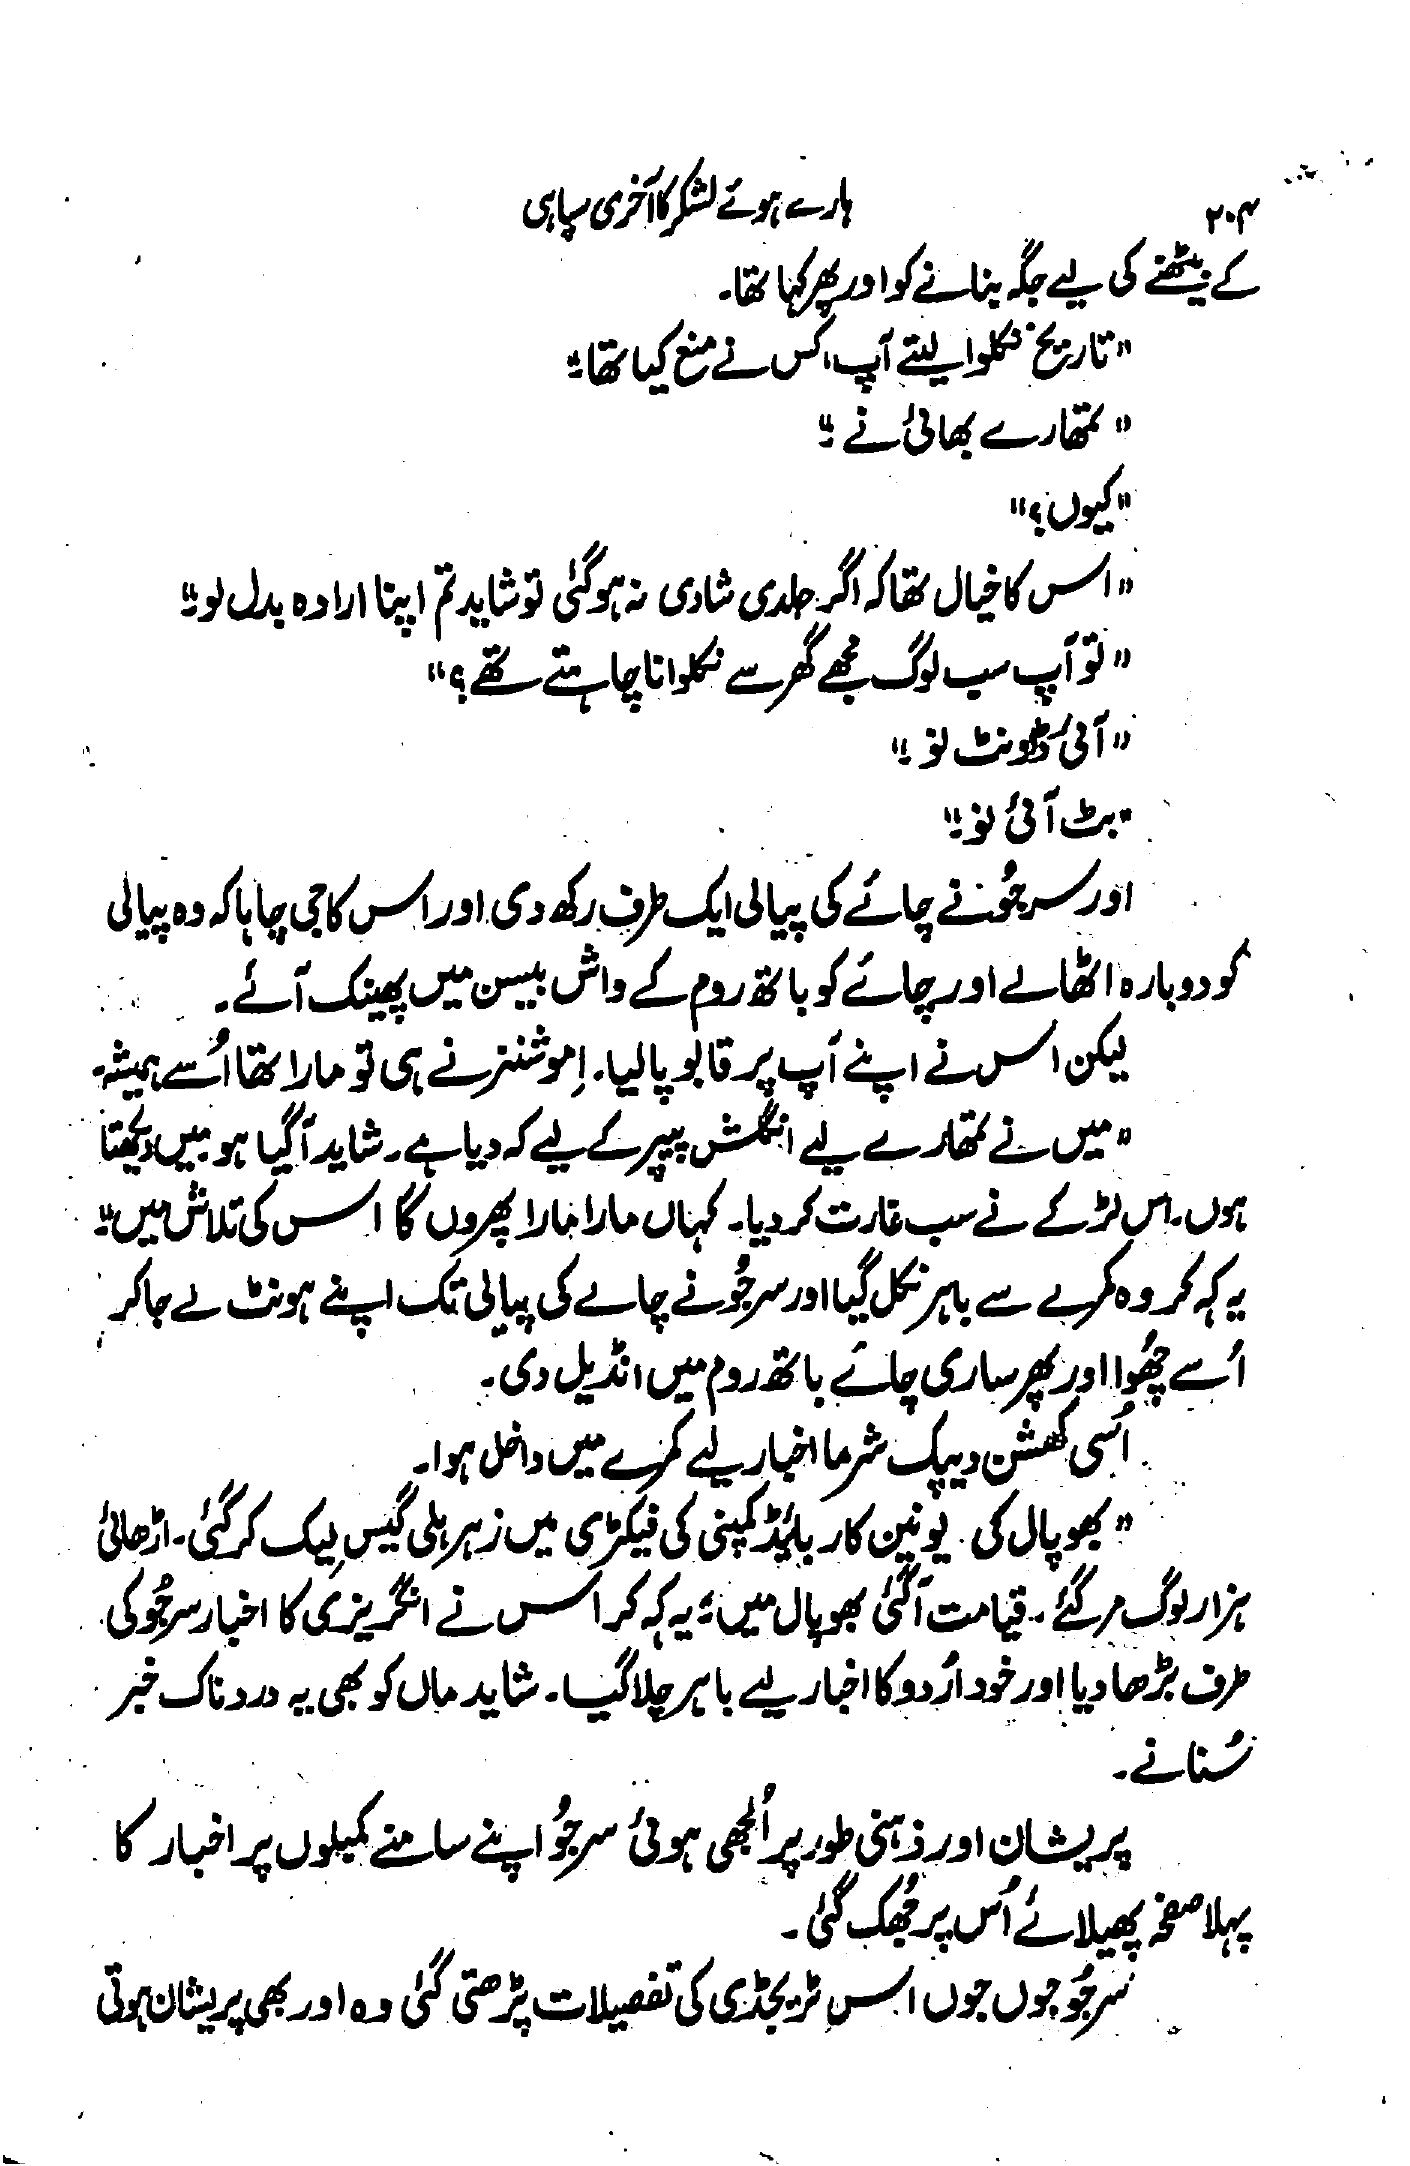 ۲۰۴ ہارے ہوئے لشکر کا آخری سپاہی
کے بیٹھنے کی لیے جگہ بنانے کو اور پھر کہا تھا۔
"تاریخ نکلوا لیتے آپ، کس نے منع کیا تھا۔"
"تمھارے بھائی نے۔"
"کیوں؟"
"اس کا خیال تھا کہ اگر جلدی شادی نہ ہو گئی تو شاید تم اپنا ارادہ بدل لو۔"
"تو آپ سب لوگ مجھے گھر سے نکلوانا چاہتے تھے؟"
"آئی ڈونٹ نو۔"
"بٹ آئی نو۔"
اور سرجُو نے چائے کی پیالی ایک طرف رکھ دی اور اس کا جی چاہا کہ وہ پیالی
کو دوبارہ اٹھالے اور چائے کو باتھ روم کے واش بیسن میں پھینک آئے۔
لیکن اس نے اپنے آپ پر قابو پالیا۔ اِموشنز نے ہی تو مارا تھا اُسے ہمیشہ۔
"میں نے تمھارے لیے انگلش پیپر کے لیے کہ دیا ہے۔ شاید آگیا ہو میں دیکھتا
ہوں۔ اس لڑکے نے سب غارت کر دیا۔ کہاں مارا مارا پھروں گا اس کی تلاش میں۔"
یہ کہہ کر وہ کمرے سے باہر نکل گیا اور سرجُو نے چائے کی پیالی تک اپنے ہونٹ لے جاکر
اُسے چھُوا اور پھر ساری چائے باتھ روم میں انڈیل دی۔
اُسی کھشن دیپک شرما اخبار لیے کمرے میں داخل ہوا۔
"بھوپال کی یونین کاربائیڈ کمپنی کی فیکڑی میں زہریلی گیس لِیک کر گئی۔ اڑھائی
ہزار لوگ مر گئے۔ قیامت آگئی بھوپال میں؛ یہ کہہ کر اس نے انگریزی کا اخبار سرجُو کی
طرف بڑھا دیا اور خود اُردو کا اخبار لیے باہر چلا گیا۔ شاید ماں کو بھی یہ دردناک خبر
سُنانے۔
پریشان اور ذہنی طور پر اُلجھی ہوئی سرجُو اپنے سامنے کمبلوں پر اخبار کا
پہلا صفحہ پھیلائے اُس پر جُھک گئی۔
سرجُو جوں جوں اس ٹریجڈی کی تفصیلات پڑھتی گئی وہ اور بھی پریشان ہوتی